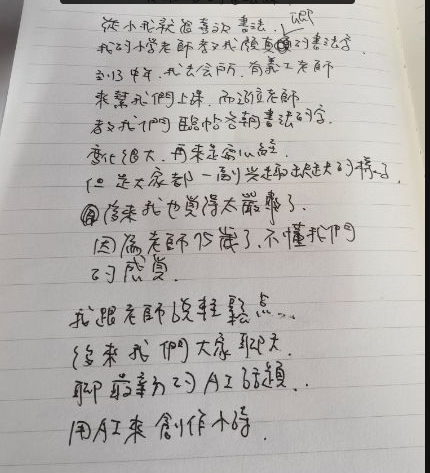 從小我就很喜欢書法.
我的小学老師教我顏真卿的書法字.
到13中年.我去会所.有義工老師
來幫我們上課.而這位老師
教我們臨帖各朝書法的字.
变化很大.再來是寫心経.
但是大家都一副兴趣缺缺的樣子.
後來我也覺得太嚴肅了.
因為老師75歲了.不懂我們
的感覚.
我跟老師說輕鬆点...
後來我們大家聊天.
聊最新的AI話題..
用AI來創作小詩.